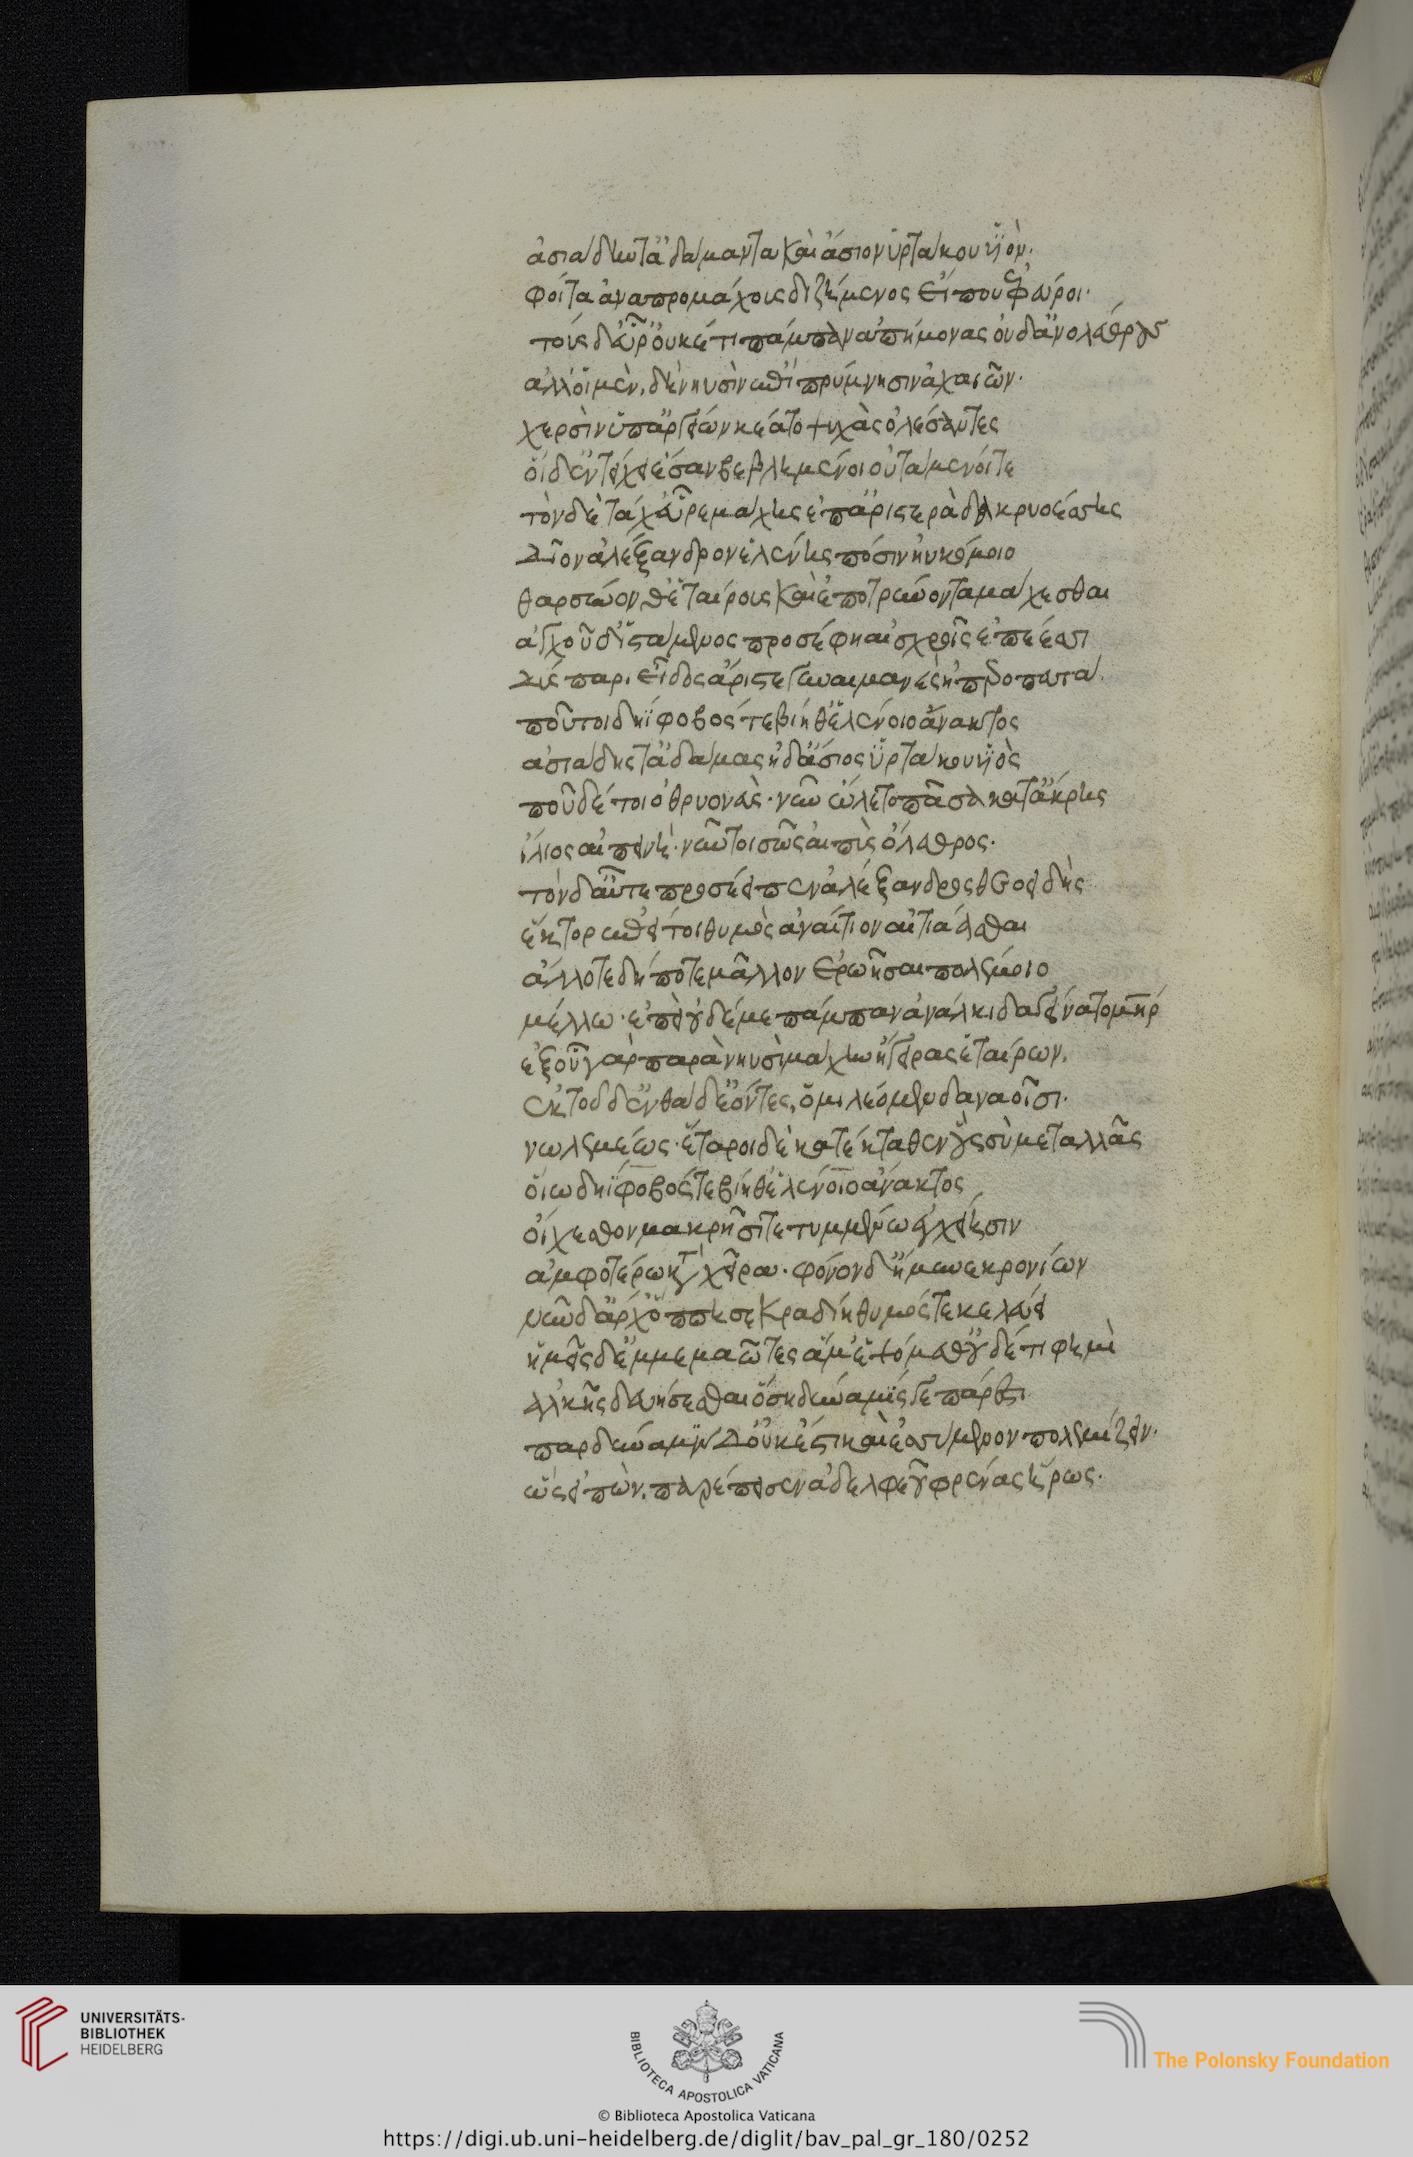 ἀσιάδην τ' ἀδάμαντα καὶ ἄσιον ὑρτάκου υἱὸν·
φοίτα ἀνὰ προμάχοις διζήμενος εἴ που ἐφεύροι·
τοὺς δ' εὗρ' οὐκέτι πάμπαν ἀπήμονας οὐδ' ἀνολέθρους
ἀλλ' οἱ μὲν, δὴ νηυσὶν ἐπι πρύμνησιν ἀχαιῶν·
χερσὶν ὑπ' ἀργείων κέατο ψυχὰς ὀλέσαντες
οἱ δ' ἐν τείχει ἔσαν βεβλημένοι οὐτάμενοί τε
τὸν δὲ τάχ' εὗρε μάχης ἐπ' ἀριστερὰ δακρυοέσσης
δῖον ἀλέξανδρον ἑλένης πόσιν ἠυκόμοιο
θαρσύνονθ' ἑταίρους καὶ ἐποτρύνοντα μάχεσθαι
ἀγχοῦ δ' ἱστάμενος προσέφη αἰσχροῖς ἐπέεσσι
δύς παρι εἶδος ἄριστε γυναιμανὲς ἠπεροπευτά
ποῦ τοι δηΐφοβός τε βίη θ' ἑλένοιο ἄνακτος
ἀσιάδης τ' ἀδάμας ἠδ' ἄσιος ὑρτάκου υἱὸς
ποῦ δέ τοι ὀθρυονεὺς· νῦν ὤλετο πᾶσα κατ' ἄκρης
ἴλιος αἰπεινὴ· νῦν τοι σῶς αἰπὺς ὄλεθρος·
τὸν δ' αὖτε προσέειπεν ἀλέξανδρος θεοειδὴς
ἕκτορ ἐπεί τοι θυμὸς ἀναίτιον αἰτιάασθαι
ἄλλοτε δή ποτε μᾶλλον ἐρωῆσαι πολέμοιο
μέλλω· ἐπεὶ οὐδέ με πάμπαν ἀνάλκιδα γείνατο μήτηρ
ἐξ οὗ γὰρ παρὰ νηυσὶ μάχην ἤγειρας ἑταίρων,
ἐκ τοῦδ' ἐνθάδ' ἐόντες, ὁμιλέομεν δαναοῖσι·
νωλεμέως· ἕταροι δὲ κατέκταθεν οὓς σὺ μεταλλᾶς
οἴω δηΐφοβός τε βίη θ' ἑλένοιο ἄνακτος
οἴχεσθον μακρῇσι τετυμμένω ἐγχείῃσιν
ἀμφοτέρω κατὰ χεῖρα· φόνον δ' ἤμυνε κρονίων
νῦν δ' ἄρχ' ὅππη σε κραδίη θυμός τε κελεύει
ἡμεῖς δ' ἐμμεμαῶτες ἅμ' ἑψόμεθ' οὐδέ τι φημὶ
ἀλκῆς δευήσεσθαι ὅση δύναμίς γε πάρεστι
παρ δύναμιν δ' οὐκ ἔστι καὶ ἐσσύμενον πολεμίζειν·
ὣς εἰπὼν, παρέπεισεν ἀδελφειοῦ φρένας ἥρως·
UNIVERSITÄTS-
BIBLIOTHEK
HEIDELBERG
BIBLIOTECA APOSTOLICA VATICANA
The Polonsky Foundation
© Biblioteca Apostolica Vaticana
https://digi.ub.uni-heidelberg.de/diglit/bav_pal_gr_180/0252